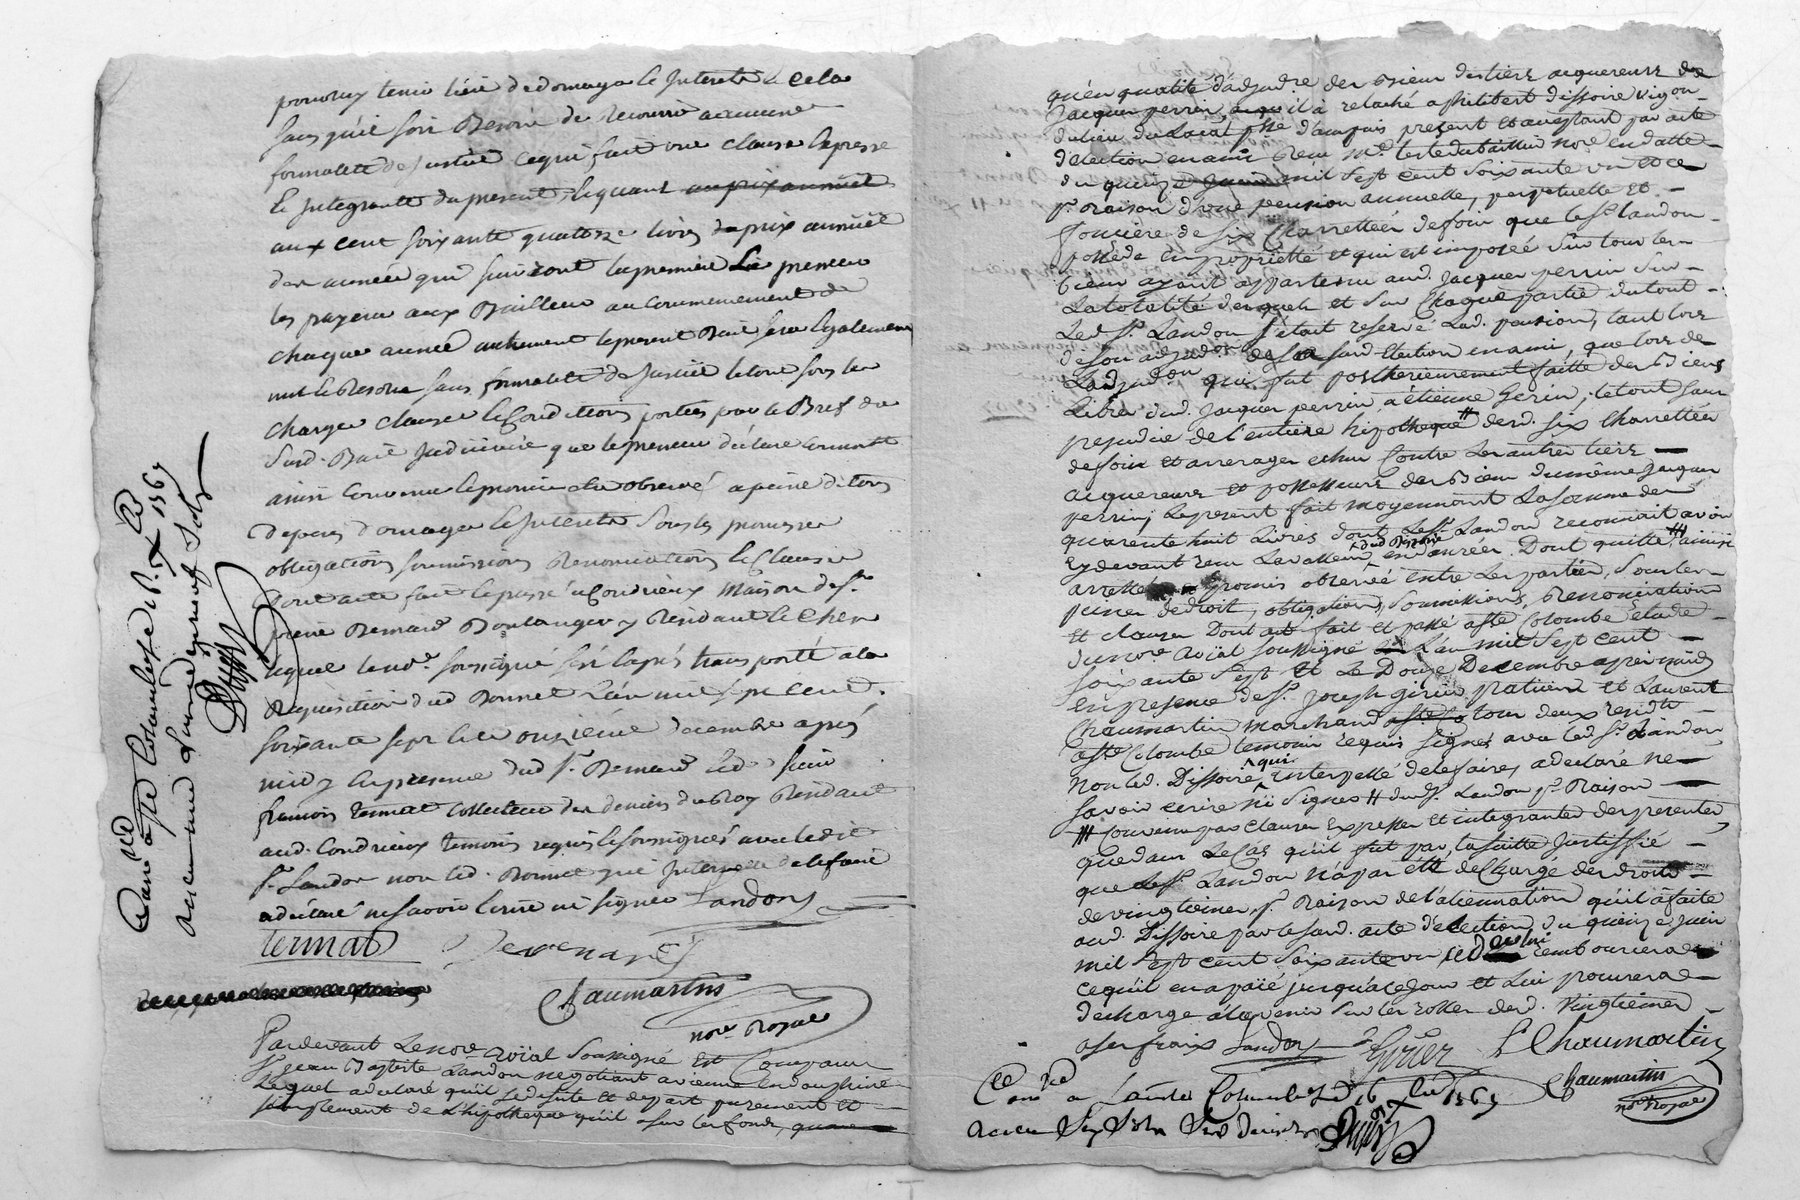 pouvoir tenir lieu de domage et Interets cela
sans qu'il soit Besoin de Recourir a aucune
formalité de justice ce qui fait une clause Expresse
et Integrante du present, et quant au prix annuel
aux cent soixante quatorze livres de prix annuel
des années qui suivront la premiere Le preneur
les payera aux Bailleur au Commencement de
chaque année autrement le present Bail sera Egalement
nul et Resolu sans formalité de justice le tout sous les
charges clauses et Conditions portées par le Bref du
Susd. Bail judiciaire que le preneur déclare connoitre
ainsi Convenu et promis Et observé a peine de tous
depens domages et Interets sous les promesses
obligations soumissions Renonciations et Clauses
dont acte fait et passé a Condrieux Maison de Sr
Bernard Boulanger y Résidant le Cher
lequel led no.re soussigné s'est Exprès transporté a la
Requisition dud Bonnet L'an mil sept cent
soixante sept et le onzieme decembre après
midy En presence dud Sr. Bernard Et de Sieur
françois Termat Collecteur des deniers du Roy Residant
aud. Condrieux temoins requis et soussignés avec ledit
Sr. Landon non led. Bonnet qui Interpellé de le faire
a déclaré ne savoir Ecrire ni signer Landon
termat
Chaumartin
no.re Royal
Pardevant Le no.re Roïal Soussigné Est Comparu
Sr Jean Baptiste Landon negotiant a vienne en dauphiné
Lequel a declaré qu'il se desiste et depart purement et
simplement de L'hipotheque qu'il a sur les fonds,
Con.lé a Ste Colombe le 16 Xbre 1767
qu'en qualité d'adjud.re des Biens des tiers acquereurs de
Jacques perrin, il a relaché a Philibert dissoire vigon
du lieu du Laval psse d'ampuis present et acceptant par acte
d'élection en ami recu Me no.re en datte
du quinze juin mil sept cent soixante un et ce
pr. Raison d'une pension annuelle, perpetuelle et
fonciere de six Charretées de foin que le Sr. landon
possede en proprieté et qui est imposée Sur tous les
biens ayant appartenu aud. Jacques perrin Sur
La totalité d'iceux et Sur Chaque partie du tout
Led. Sr. Landon s'étant reservé Lad. pension, tant lors
de son adjud.on de sa susd Election en ami, que lors de
Ladjud.on qui fut posterieurement faitte des Biens
Libres dud. Jacques perrin, a étienne Gerin, le tout sans
prejudice de l'entiere hipotheque # desd. six Charretées
de foin et arrerages echus Contre Les autres tiers
acquereurs et possesseurs des Biens du même Jacques
perrin; Le present fait moyennant La somme de
quarente huit Livres dont Le Sr. Landon reconnoit avoir
cy devant recu La valleur dud Dissoire en danrées. Dont quitte ### ainsi
arretté promis observé entre Les parties, Sous les
peines de droit, obligations, Soumissions, Renonciation
et clauses Dont acte fait et passé a Ste Colombe Etude
du no.re roïal soussigné L'an mil Sept Cent
soixante Sept et Le Douze Decembre après midy
en presence de Sr. Joseph Girier praticien et Laurent
Chaumartin marchand tous deux resid.ts
a Ste Colombe temoins requis Signés avec led Sr. Landon
non led. Dissoire qui interpellé de le faire, a declaré ne
savoir ecrire ni Signer # dud Sr. Landon pr. Raison
### Convenu par Clause Expresse et integrante des presentes
que dans Le Cas qu'il fut par La suitte justiffié
que led Sr. Landon n'a pas été déchargé des droits
de vingtiemes, pr. Raison de l'alienation qu'il a faite
aud. Dissoire par le susd. acte d'election du quinze juin
mil Sept cent Soixante un, led remboursera
ce qu'il en a païé jusqu'a ce jour et Lui procurera
decharge a l'avenir Sur les rolles desd. vingtiemes
a ses fraix Landon Girier L Chaumartin
Chaumartin
no.re Royal
Con.lé a Sainte Colombe le 16 Xbre 1767